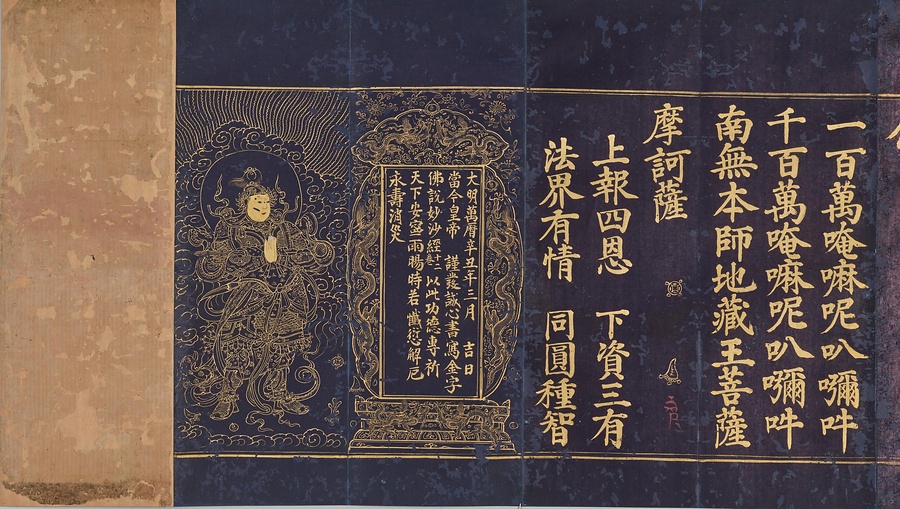 一百萬唵嘛呢叭吽
千百萬唵嘛呢叭吽
南無本師地藏王菩薩
摩訶薩
上報四恩 下資三有
法界有情 同圓種智
大明萬曆辛丑年三月 吉日
當今皇帝 謹發誠心書寫金字
佛說妙沙經十二卷以此功德專祈
天下安寧雨暘時若懺愆解厄
永壽消災